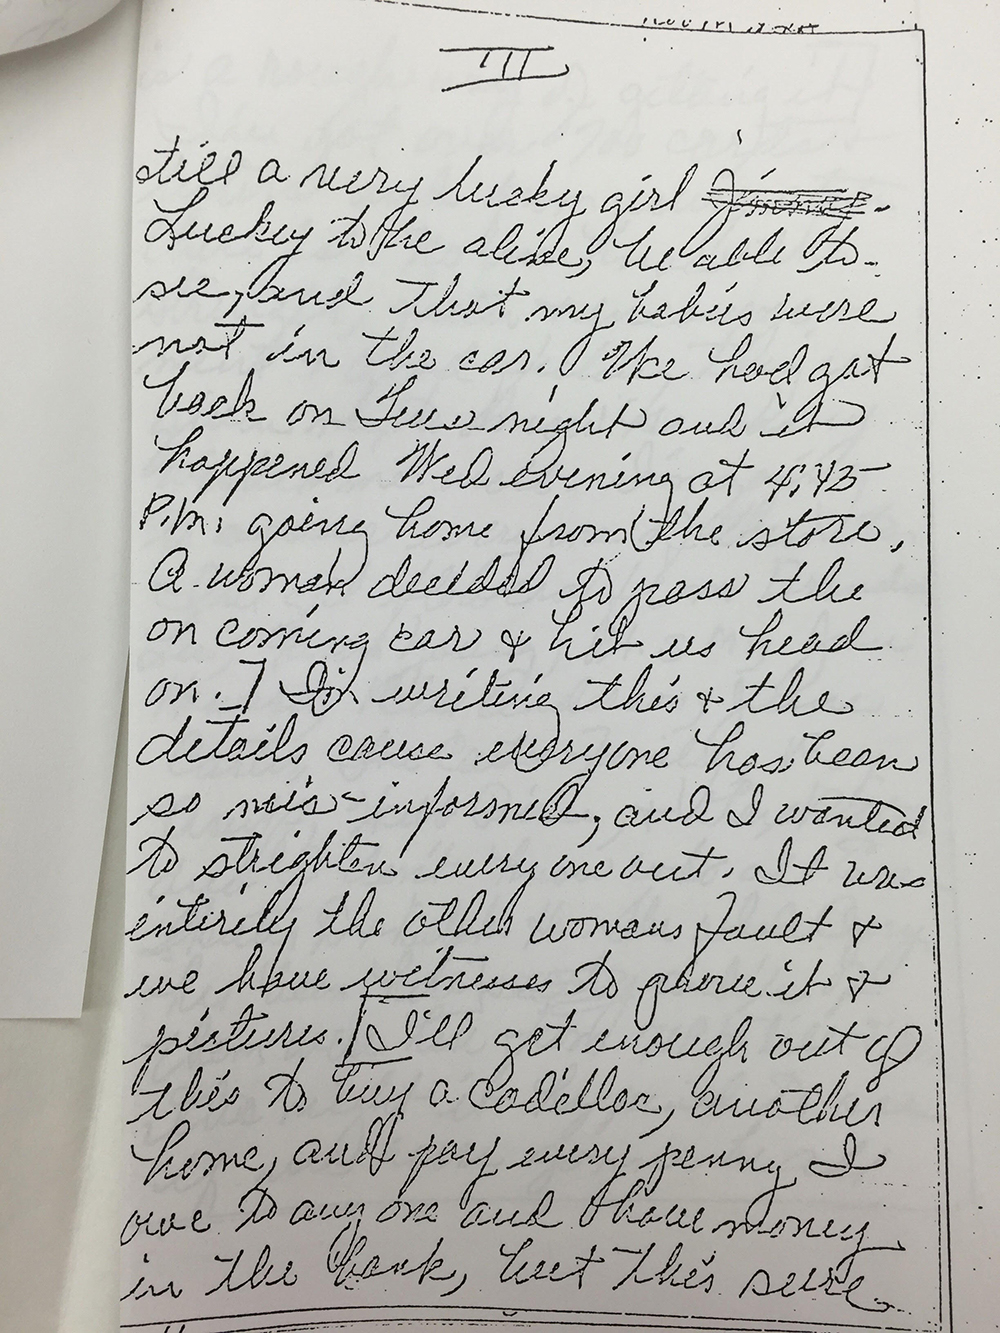 III
still a very lucky girl
Luckey to be alive, be able to
see, and that my babies were
not in the car. We had got
back on Tues night and it
happened Wed evening at 4:45
P.M. going home from the store.
A woman decided to pass the
on coming car & hit us head
on.] I'm writing this & the
details cause everyone has been
so mis-informed, and I wanted
to strighten every one out. It was
entirely the other womans fault &
we have witnesses to prove it &
pictures. [I'll get enough out of
this to buy a Cadillac, another
home, and pay every penny I
owe to any one and have money
in the bank, but this sure